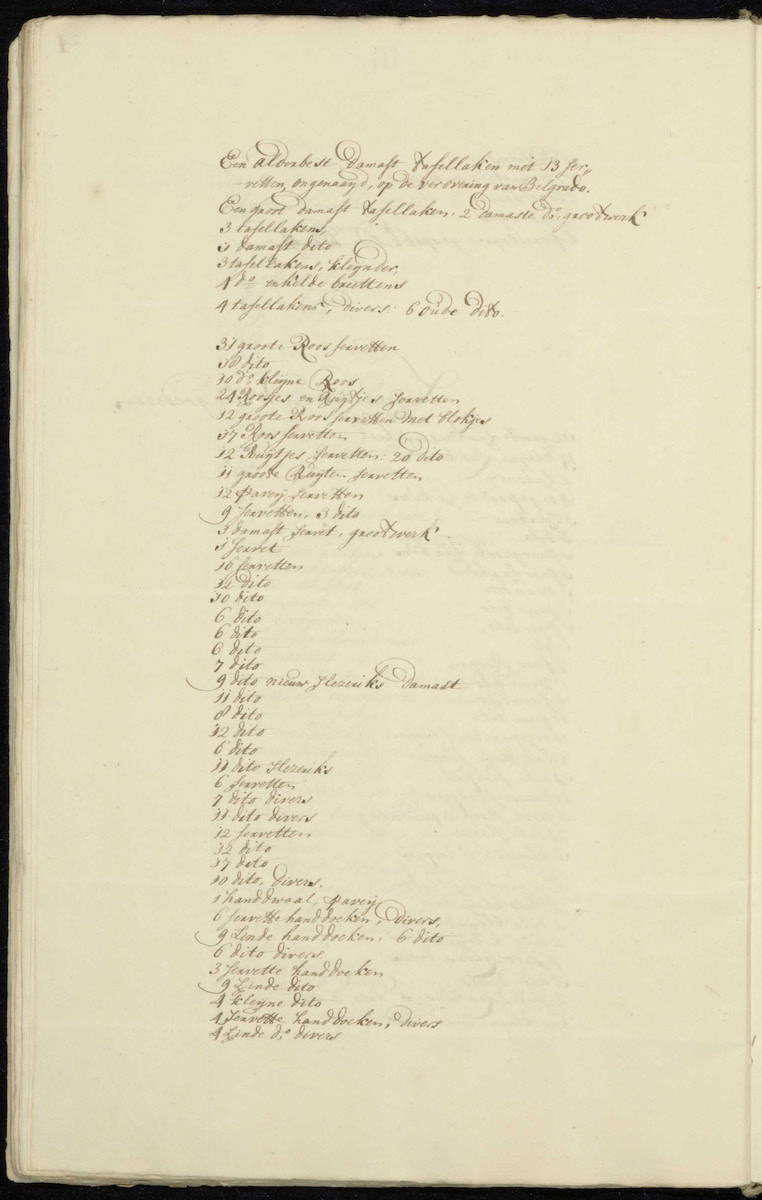 Een alderbest damast tafellaken met 13 ser„
vetten, ongenaayd, op de verovering van Belgrado.
Een groot damast tafellaken. 2 damaste do. grootwerk
3 tafellakens,
1 damast dito
3 tafellakens, kleynder,
4 do enkelde
4 tafellakens, divers. 6 oude dito.
31 groote Roos servetten
18 dito
10 do kleyne Roos
24 Roosjes en Ruytjes servetten
12 groote Roos servetten met blokjes
37 Roos servetten
12 Ruytjes servetten: 20 dito
11 groote Ruyten servetten
12 Pavey servetten
9 servetten, 3 dito
3 damast servet, grootwerk
1 servet
16 servetten
12 dito
10 dito
6 dito
6 dito
6 dito
7 dito
9 dito nieuw Hezeriks damast
11 dito
8 dito
12 dito
6 dito
11 dito Hezeriks
6 servetten
7 dito divers
11 dito divers
12 servetten
12 dito
17 dito
10 dito, divers.
1 handdwaal, Pavey
6 servette handdoeken, divers,
9 Linde handdoeken. 6 dito
6 dito divers
3 servette handdoeken
9 Linde dito
4 kleyne dito
4 servette handdoeken, divers
4 Linde do. divers